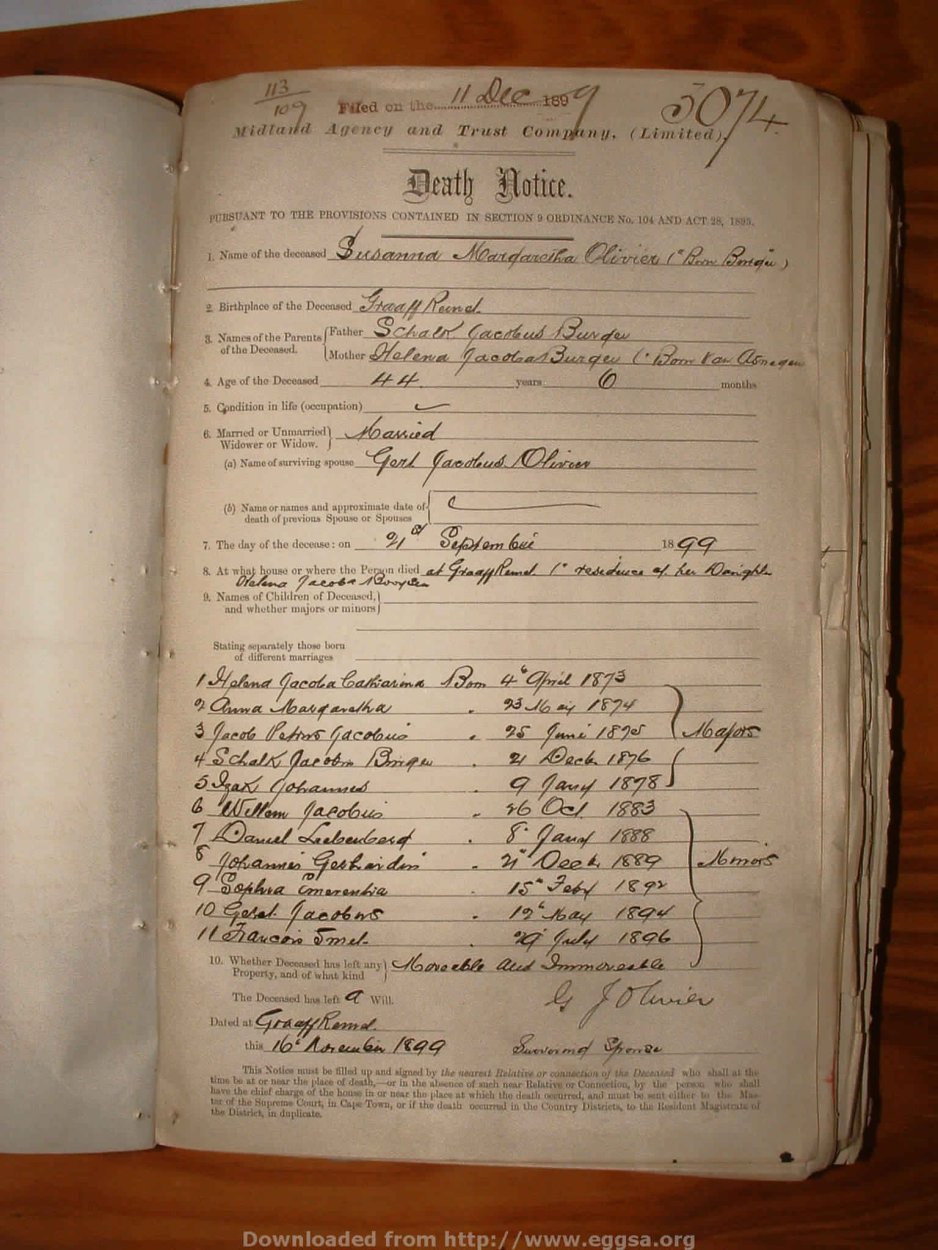 113
109
Filed on the 11 Dec 1899
3074
Midland Agency and Trust Company, (Limited).
Death Notice.
PURSUANT TO THE PROVISIONS CONTAINED IN SECTION 9 ORDINANCE No. 104 AND ACT 28, 1895.
1. Name of the deceased Susanna Margaretha Olivier (Born Burger)
2. Birthplace of the Deceased Graaff Reinet
3. Names of the Parents of the Deceased. Father Schalk Jacobus Burger
Mother Helena Jacoba Burger (Born Van
4. Age of the Deceased 44 years 6 months
5. Condition in life (occupation)
6. Married or Unmarried Widower or Widow. Married
(a) Name of surviving spouse Gert Jacobus Olivier
(b) Name or names and approximate date of
death of previous Spouse or Spouses
7. The day of the decease: on 21st September 1899
8. At what house or where the Person died at Graaff Reinet (residence of her Daughter
Helena Jacoba
9. Names of Children of Deceased,
and whether majors or minors
Stating separately those born
of different marriages
1 Helena Jacoba Catharina Born 4th April 1873
2 Anna Margaretha . 23 May 1874
3 Jacob Petrus Jacobus . 25 Juni 1875 Majors
4 Schalk Jacobus Burger . 21 Decb 1876
5 Izak Johannes 9 Jany 1878
6 Willem Jacobus . 26 Oct 1883
7 Daniel Liebenberg . 8 Jany 1888
8 Johannes Gerhardus . 21 Decb 1889 Minors
9 Sophia Emerentia . 15th Feby 1892
10 Gerst Jacobus . 12th May 1894
11 Francois Smel . 29 July 1896
10. Whether Deceased has left any Property, and of what kind Moveable and Immoveable
The Deceased has left a Will.
G J Olivier
Dated at Graaff Reinet
this 16th November 1899 Surviving Spouse
This Notice must be filled up and signed by the nearest Relative or connection of the Deceased who shall at the
time be at or near the place of death,—or in the absence of such near Relative or Connection, by the person who shall
have the chief charge of the house in or near the place at which the death occurred, and must be sent either to the Mas-
ter of the Supreme Court, in Cape Town, or if the death occurred in the Country Districts, to the Resident Magistrate of
the District, in duplicate.
Downloaded from http://www.eggsa.org